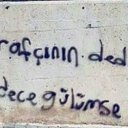 rafçının. ded
dece gülümse